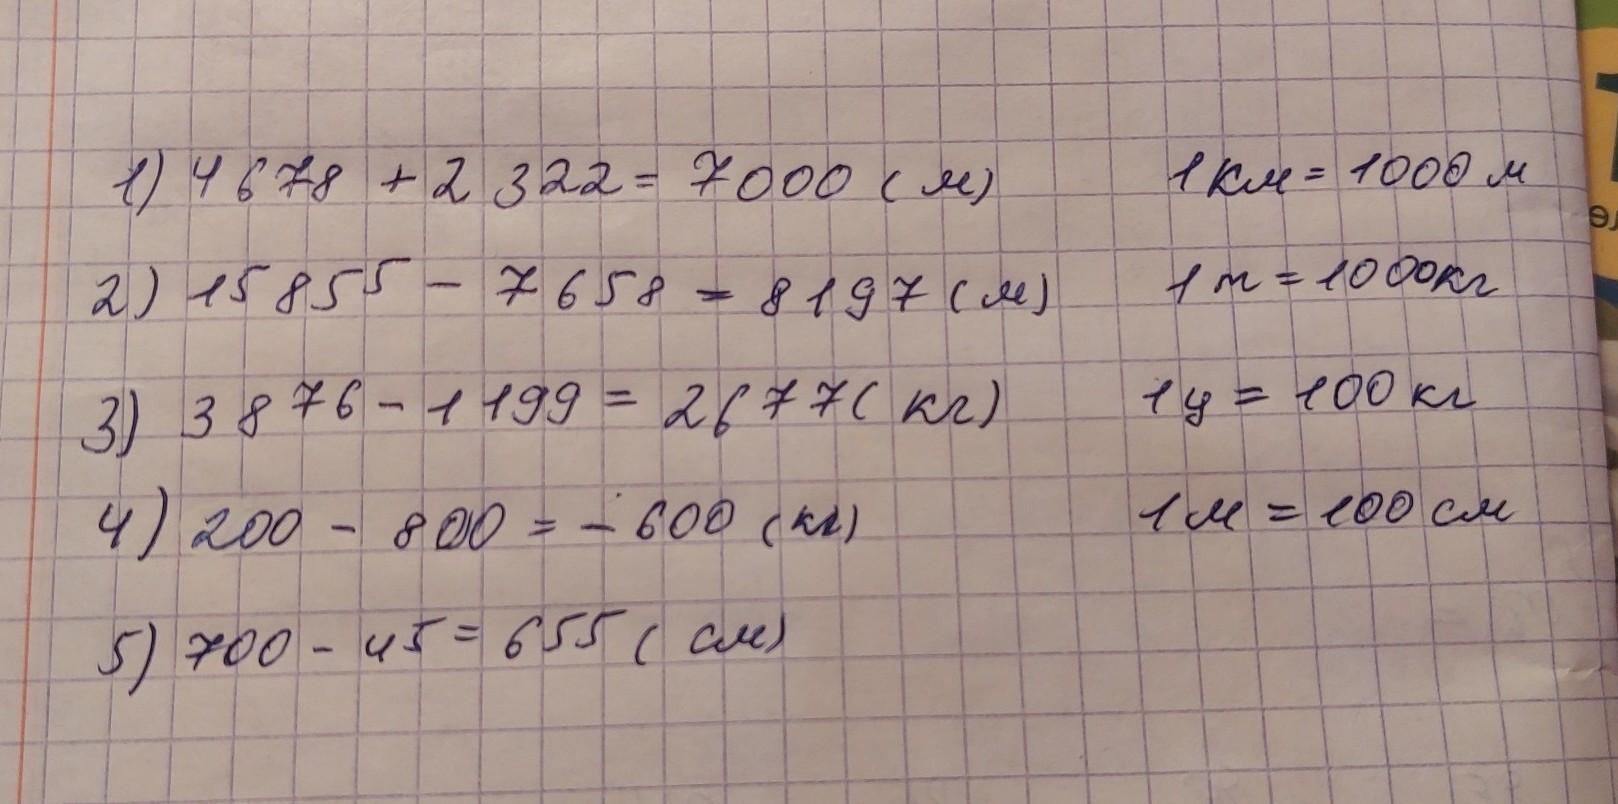 1) 4678 + 2322 = 7000 (м) 1 км = 1000 м
2) 15855 - 7658 = 8197 (м) 1 т = 1000 кг
3) 3876 - 1199 = 2677 (кг) 1 ц = 100 кг
4) 200 - 800 = - 600 (кг) 1 м = 100 см
5) 700 - 45 = 655 (см)